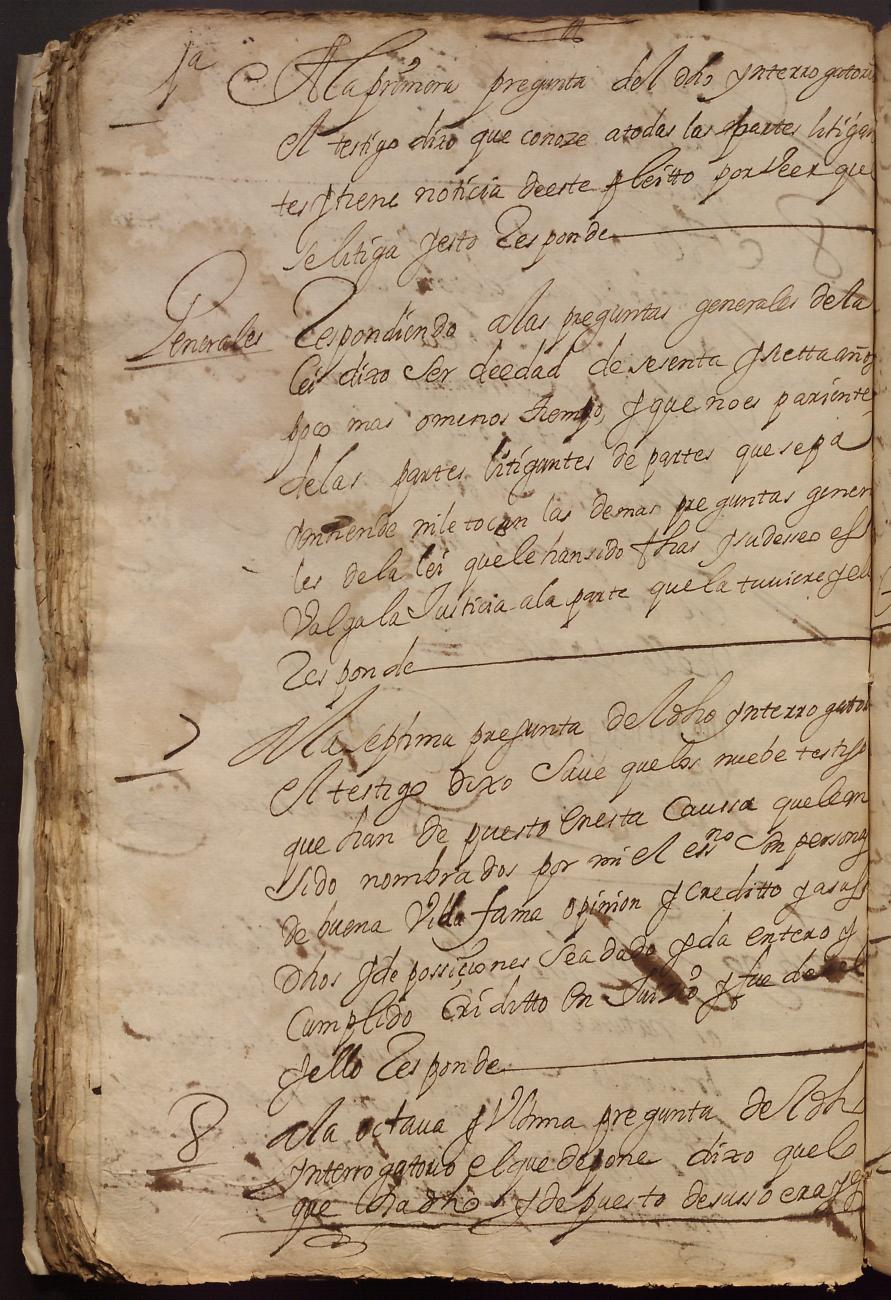 1ª A la primera pregunta del dho ynterrogatorio
el testigo dixo que conoze atodas las partes litigan
tes y tiene noticia deeste pleitto por veer que
se litiga y esto Responde
Generales Respondiendo alas preguntas generales dela
lei dixo ser deedad de sesenta y siette años
poco mas omenos tiempo, y que noes pariente
delas partes litigantes de partes que sepa
y entiende nile tocan las demas preguntas genera
les dela lei que le han sido fhas y su deseo es
Valga la Justicia ala parte que la tuviere y ello
Responde
7 A la septima pregunta del dho ynterrogatorio
el testigo dixo save que los nuebe testigos
que han depuesto en esta Caussa que le an
sido nombrados por mi el essno son personas
de buena Vida fama opinion y creditto y a sus
dhos y depossiçiones sea dado y da entero y
Cumplido Creditto en Juiçio y fuera del
y ello Responde
8 a la octaua y Vltima pregunta del dho
ynterrogatorio el que depone dixo que lo
que ha dho y depuesto desusso era y es